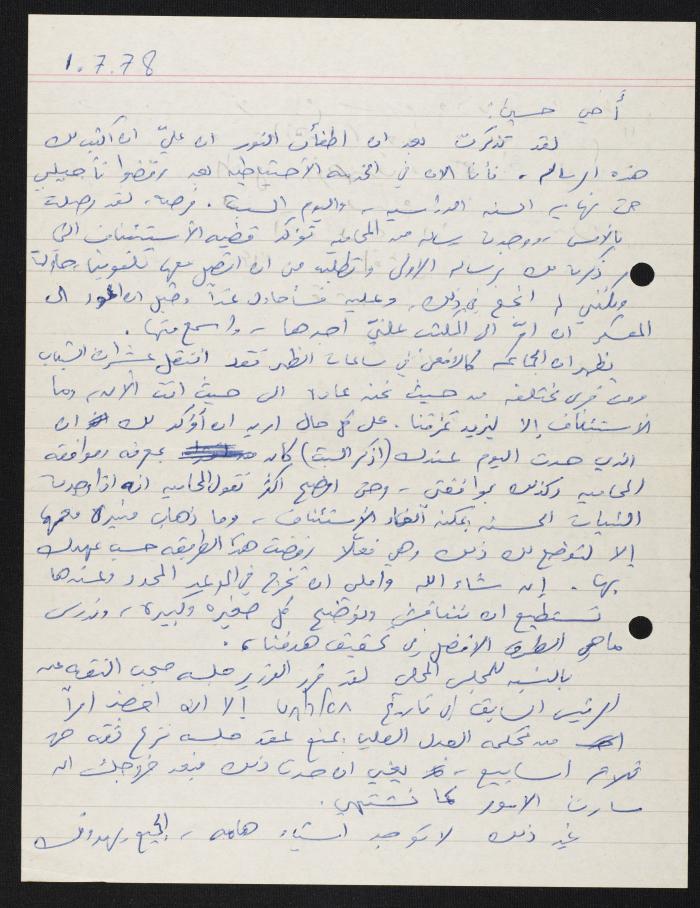 1.7.78
أخي حسين:
لقد تذكرت بعد ان اطفأت النور ان عليّ ان اكتب لك
هذه الرسالة، فأنا الان في الخدمة الاحتياطية بعد رفضوا تأجيلي
حتى نهاية السنة الدراسية، واليوم السبت. فرصة، لقد وصلت
بالامس ووجدت رسالة من المحامية تؤكد قضية الاستئناف التي
ذكرت لك برسالة الاولى وتطلب من ان اتصل معها تلفونيا، حاولت
ولكنني لم انجح في ذلك، وعليه فسأحاول غداً وقبل ان اعود الى
المعسكر ان امرّ الى المكتب علنيّ اجدها، واسمع منها.
يظهر ان المحاكمة كالافعى في ساعات الظهر فقد انتقل عشرات الشباب
ومن قرى مختلفة من حيث نحن عادة الى حيث انت الان، وما
الاستئناف إلا ليزيد تمزقنا. على كل حال اريد ان أؤكد لك ان
الذي حدث اليوم عندك (اذكر السبت) كان بمعرفة وموافقة
المحامية وكذلك بموافقتي، وحتى اوضح اكثر تقول المحامية انه اذا وجدت
النيات الحسنة يمكنه الغاء الاستئناف، وما ذهاب منيرة معهما
إلا لتوضح لك ذلك وهي فعلًا رفضت هذا الطريقة حسب عهدك
بها. إن شاء الله وأملي ان تخرج في الموعد المحدد وعندها
نستطيع ان نتناقش ونوضح كل صغيرة وكبيرة، وندرس
ماهي الطرق الافضل في تحقيق هدفنا.
بالنسبة للمجلس المحلي لقد قرر الوزير جلسة حجب الثقة عن
الرئيس السابق في تاريخ ٧٨/٦/٢٨ إلا انه احضر امراً
من محكمة العدل العليا بمنع عقد جلسة نزع ثقة حتى
ثلاثة اسابيع، يعني ان حدث ذلك فبعد خروجك ان
سارت الامور كما نشتهي.
غير ذلك لا توجد اشياء هامة، الجميع يهدونك